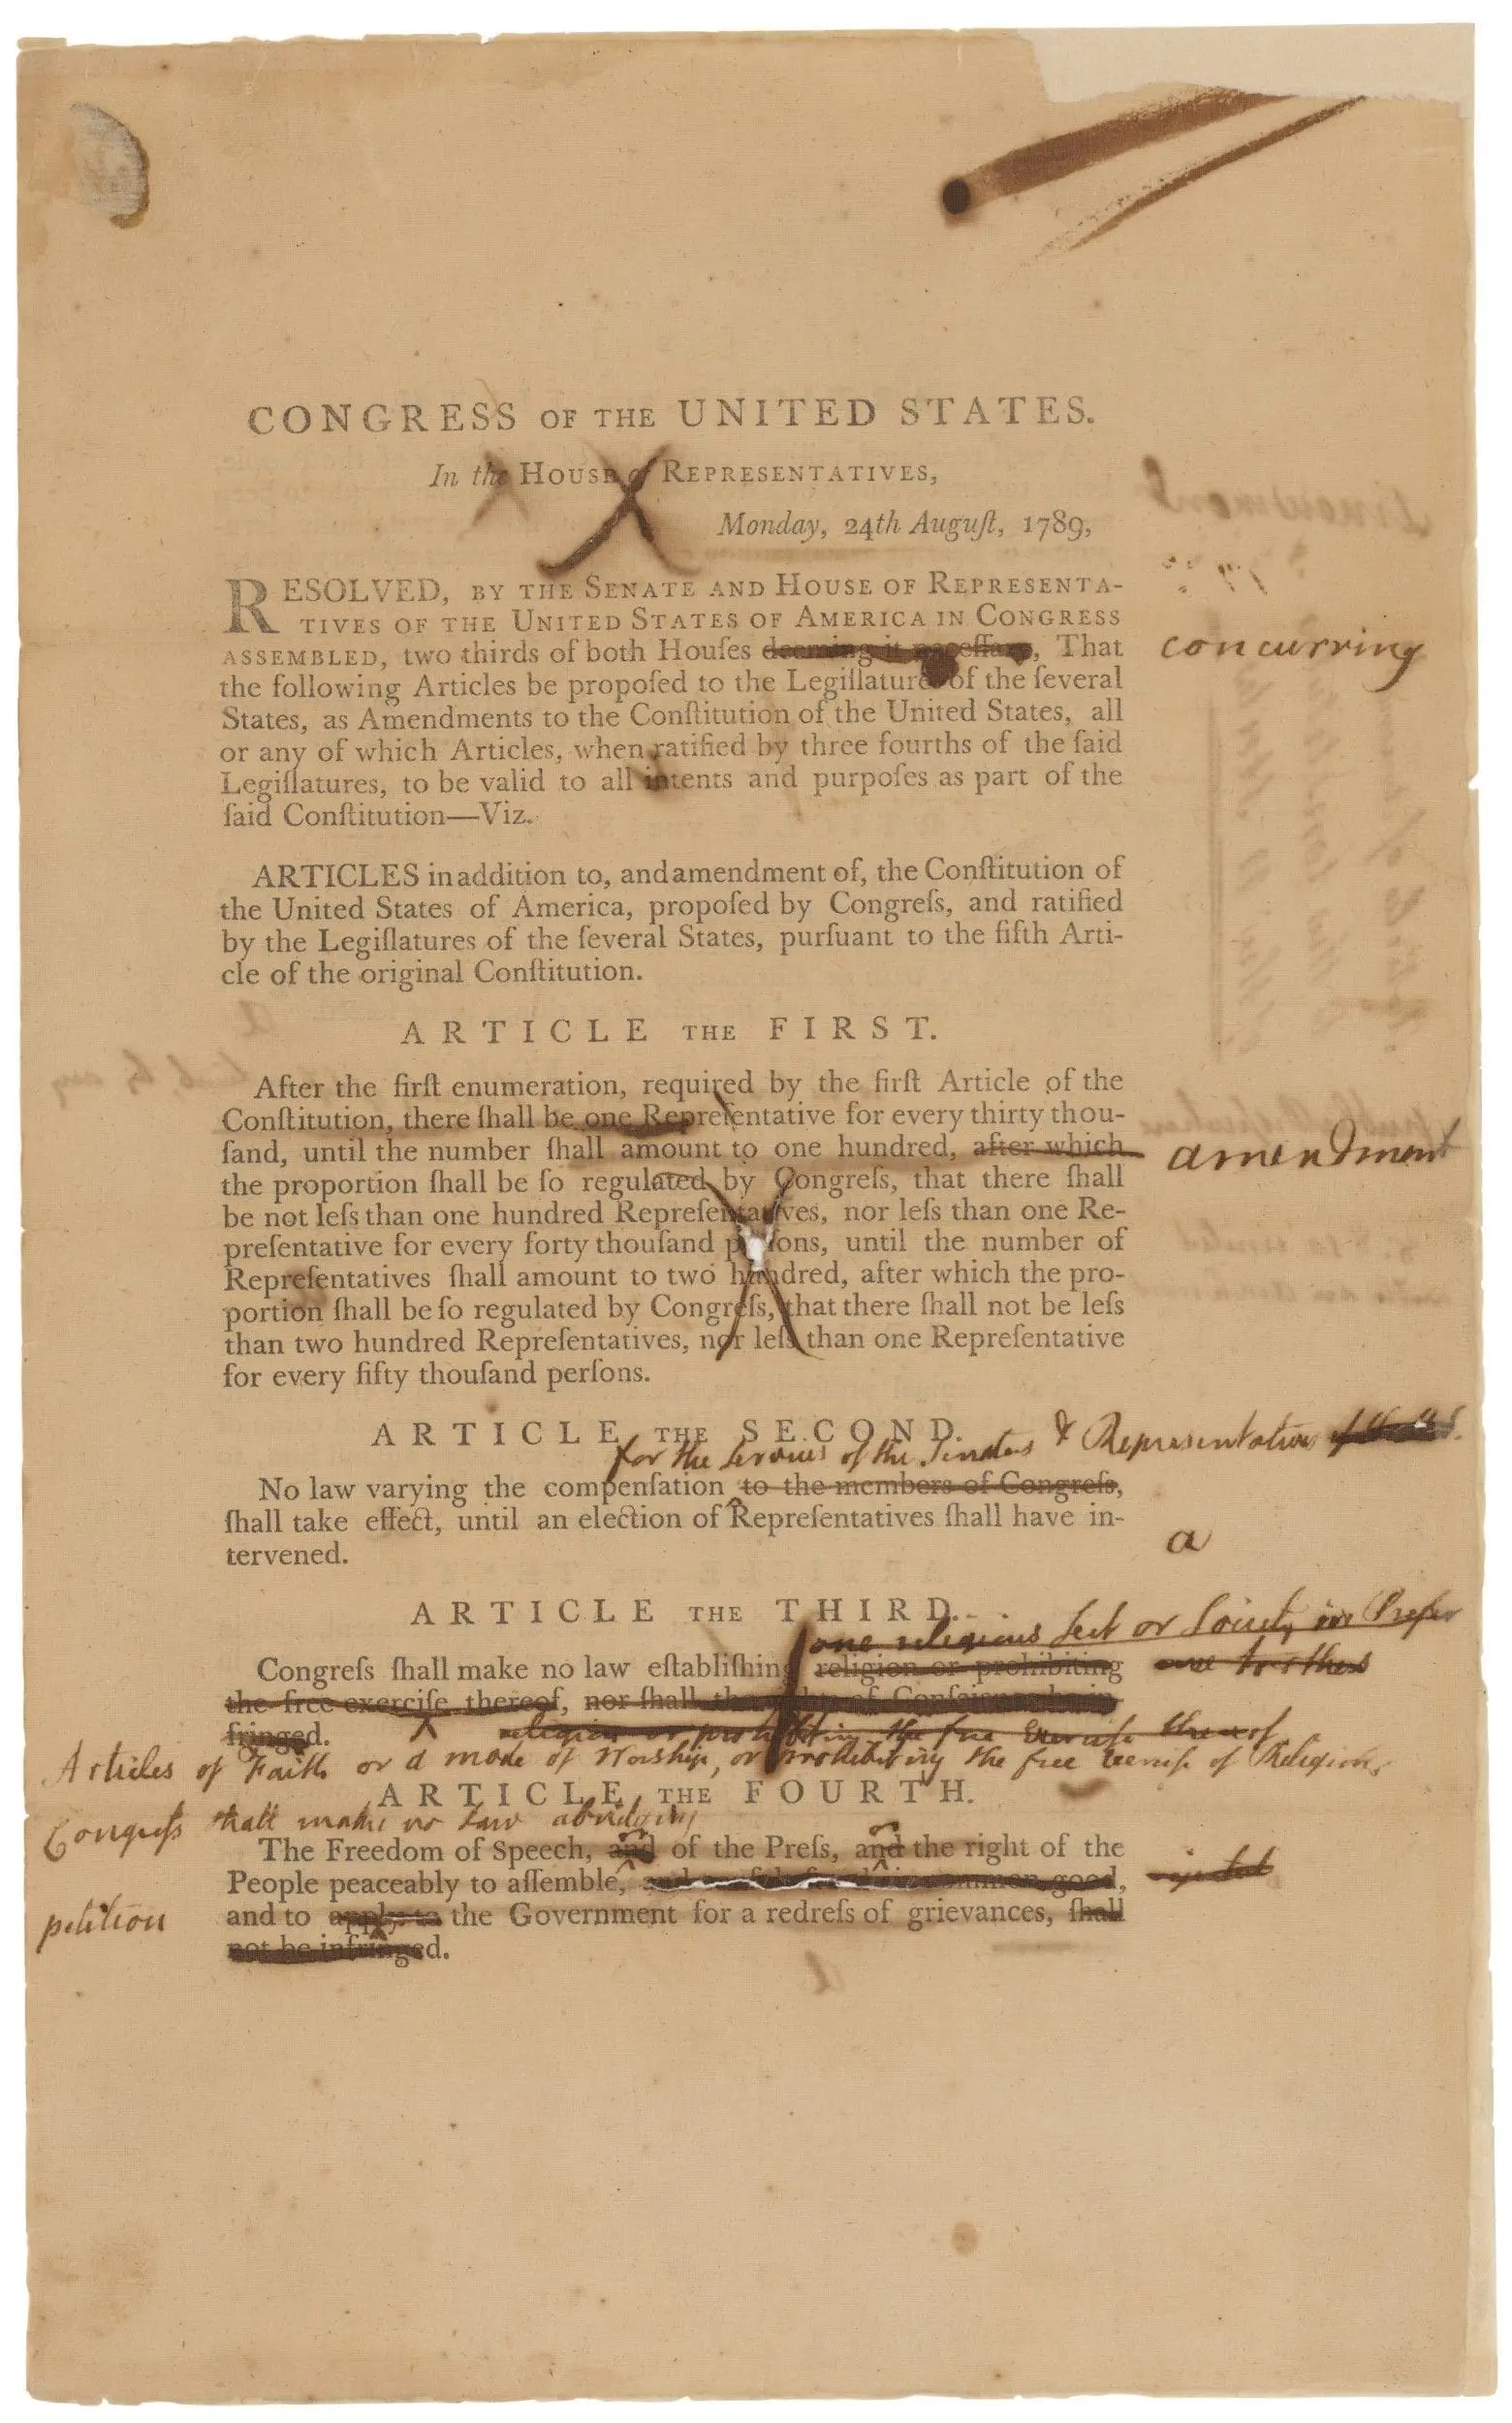 CONGRESS OF THE UNITED STATES.
In the HOUSE of REPRESENTATIVES,
Monday, 24th Auguſt, 1789,
RESOLVED, BY THE SENATE AND HOUSE OF REPRESENTA-
TIVES OF THE UNITED STATES OF AMERICA IN CONGRESS
ASSEMBLED, two thirds of both Houſes deeming it neceſſary, That concurring
the following Articles be propoſed to the Legiſlatures of the ſeveral
States, as Amendments to the Conſtitution of the United States, all
or any of which Articles, when ratified by three fourths of the ſaid
Legiſlatures, to be valid to all intents and purpoſes as part of the
ſaid Conſtitution—Viz.
ARTICLES in addition to, and amendment of, the Conſtitution of
the United States of America, propoſed by Congreſs, and ratified
by the Legiſlatures of the ſeveral States, purſuant to the fifth Arti-
cle of the original Conſtitution.
ARTICLE THE FIRST.
After the firſt enumeration, required by the firſt Article of the
Conſtitution, there ſhall be one Repreſentative for every thirty thou-
ſand, until the number ſhall amount to one hundred, after which amendment
the proportion ſhall be ſo regulated by Congreſs, that there ſhall
be not leſs than one hundred Repreſentatives, nor leſs than one Re-
preſentative for every forty thouſand perſons, until the number of
Repreſentatives ſhall amount to two hundred, after which the pro-
portion ſhall be ſo regulated by Congreſs, that there ſhall not be leſs
than two hundred Repreſentatives, nor leſs than one Repreſentative
for every fifty thouſand perſons.
ARTICLE THE SECOND.
for the services of the Senators & Representatives
No law varying the compenſation to the members of Congreſs,
ſhall take effect, until an election of Repreſentatives ſhall have in-
tervened.
a
ARTICLE THE THIRD.
one religious Sect or Society in Prefer
Congreſs ſhall make no law eſtabliſhing religion or prohibiting ence to others
the free exerciſe thereof, nor ſhall the rights of Conſcience be in-
fringed.
religion or prohibiting the free Exercise thereof
Articles of Faith or a mode of Worship, or prohibiting the free exercise of Religion,
ARTICLE THE FOURTH.
Congreſs shall make no law abridging
The Freedom of Speech, and or of the Preſs, and or the right of the
People peaceably to aſſemble, common good,
petition and to apply to the Government for a redreſs of grievances, ſhall
not be infringed.